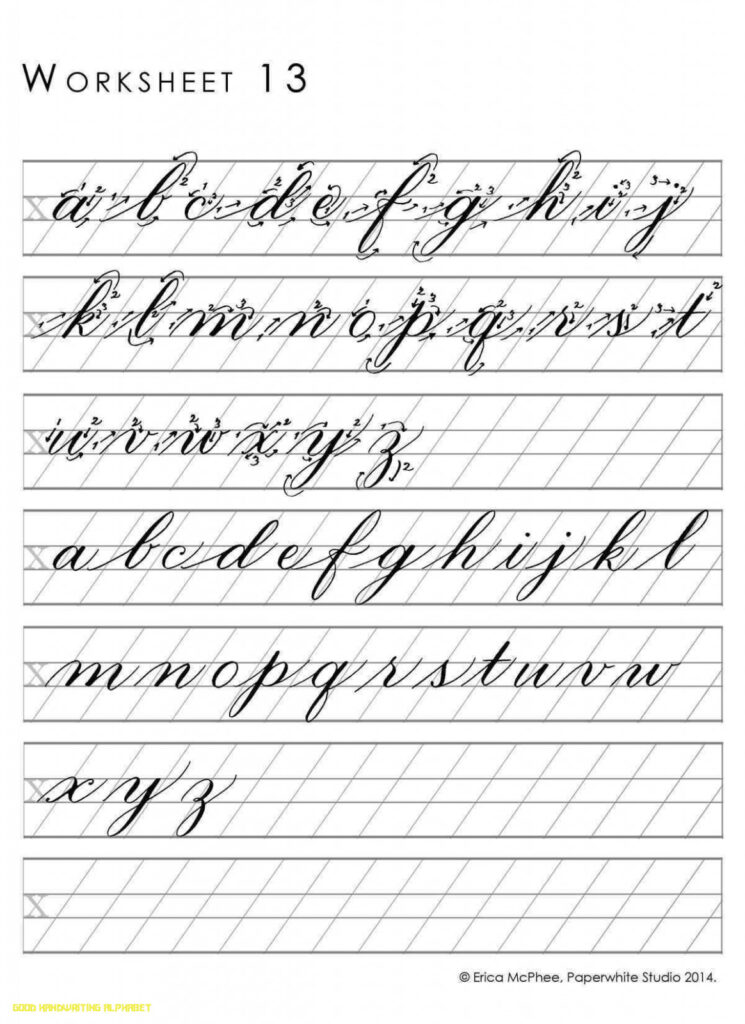 WORKSHEET 13
x a b c d e f g h i j
x k l m n o p q r s t
x u v w x y z
x a b c d e f g h i j k l
x m n o p q r s t u v w
x x y z
x
© Erica McPhee, Paperwhite Studio 2014.
GOOD HANDWRITING ALPHABET